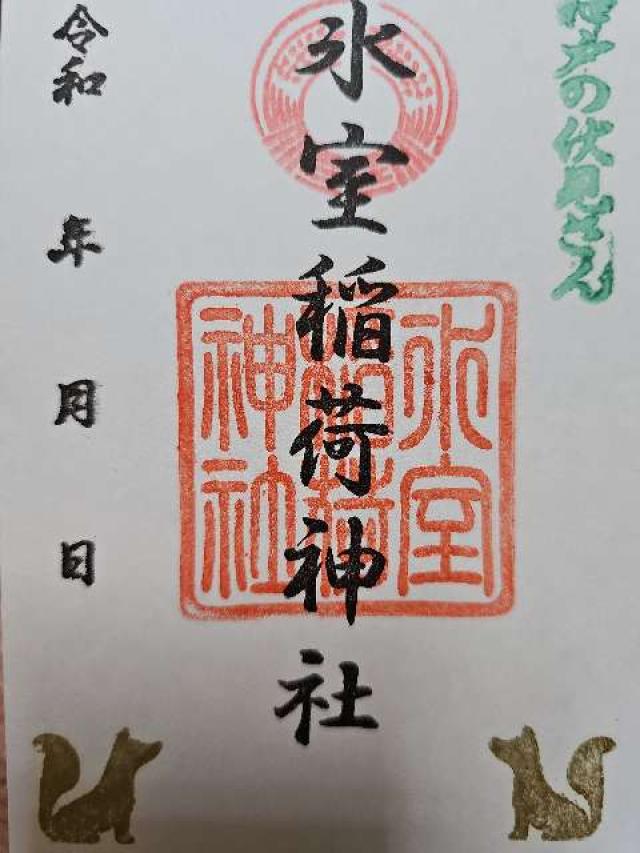 神戸の伏見さん
氷室稲荷神社
氷室
稲荷
神社
令和 年 月 日